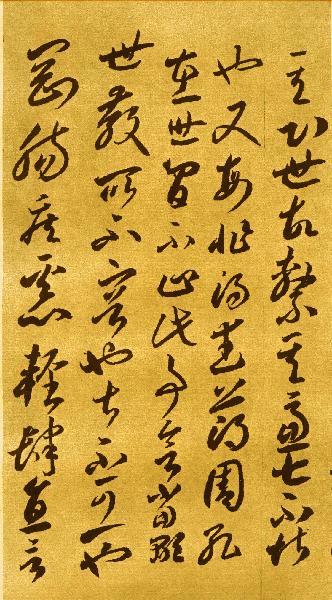 其心世故繁其慮七不堪
也又每非湯武薄周孔
在世間不止此事會當顯
世教所不容此甚不可一也
剛腸疾惡輕肆直言